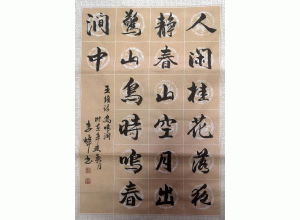 人闲桂花落夜
静春山空月出
驚山鳥時鳴春
澗中
王維詩鳥鳴澗